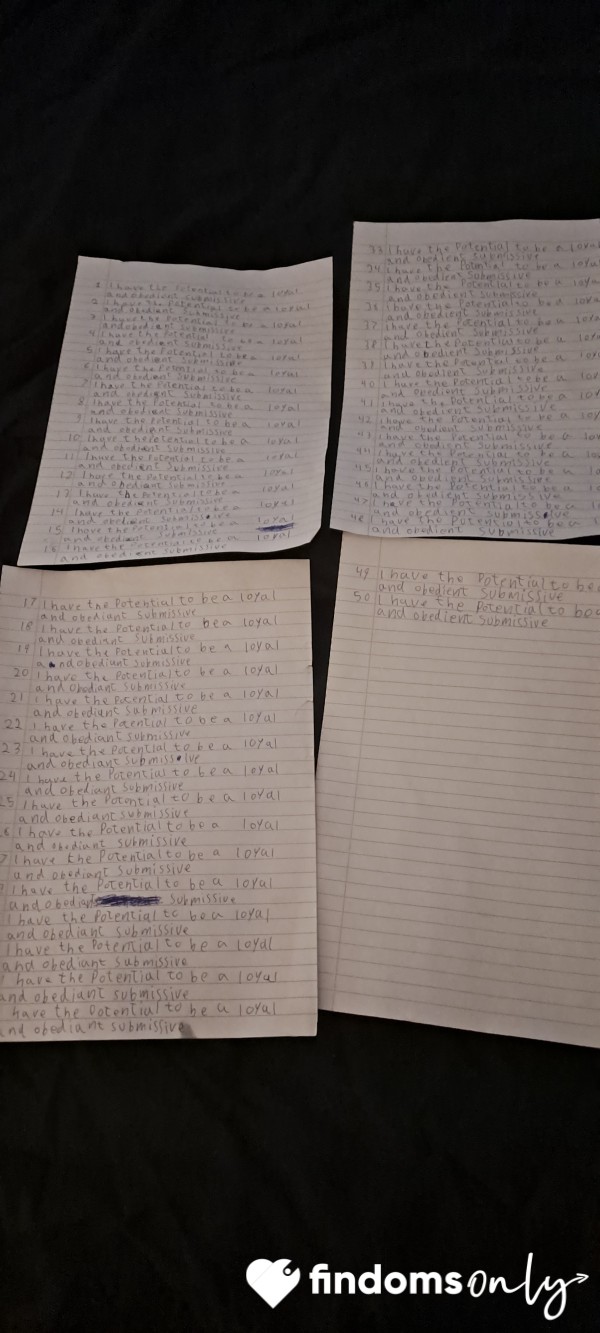 1 I have the Potential to be a loyal
and obedient submissive
2 I have the Potential to be a loyal
and obedient submissive
3 I have the Potential to be a loyal
and obedient submissive
4 I have the Potential to be a loyal
and obedient submissive
5 I have the Potential to be a loyal
and obedient submissive
6 I have the Potential to be a loyal
and obedient submissive
7 I have the Potential to be a loyal
and obedient submissive
8 I have the Potential to be a loyal
and obedient submissive
9 I have the Potential to be a loyal
and obedient submissive
10 I have the Potential to be a loyal
and obedient submissive
11 I have the Potential to be a loyal
and obedient submissive
12 I have the Potential to be a loyal
and obedient submissive
13 I have the Potential to be a loyal
and obedient submissive
14 I have the Potential to be a loyal
and obedient submissive
15 I have the Potential to be a loyal
and obedient submissive
16 I have the Potential to be a loyal
and obedient submissive
17 I have the Potential to be a loyal
and obediant submissive
18 I have the Potential to be a loyal
and obediant submissive
19 I have the Potential to be a loyal
and obediant submissive
20 I have the Potential to be a loyal
and obediant submissive
21 I have the Potential to be a loyal
and obediant submissive
22 I have the Potential to be a loyal
and obediant submissive
23 I have the Potential to be a loyal
and obediant submissive
24 I have the Potential to be a loyal
and obediant submissive
25 I have the Potential to be a loyal
and obediant submissive
6 I have the Potential to be a loyal
and obediant submissive
7 I have the Potential to be a loyal
and obediant submissive
I have the Potential to be a loyal
and obediant submissive
I have the Potential to be a loyal
and obediant submissive
I have the Potential to be a loyal
and obediant submissive
I have the Potential to be a loyal
and obediant submissive
have the Potential to be a loyal
and obediant submissive
33 I have the Potential to be a loyal
and obedient submissive
34 I have the Potential to be a loya
and obedient submissive
35 I have the Potential to be a loya
and obedient submissive
36 I have the Potential to be a loya
and obedient submissive
37 I have the Potential to be a loya
and obedient submissive
38 I have the Potential to be a loya
and obedient submissive
39 I have the Potential to be a loya
and obedient submissive
40 I have the Potential to be a loya
and obedient submissive
41 I have the Potential to be a loya
and obedient submissive
42 I have the Potential to be a loy
and obedient submissive
43 I have the Potential to be a loy
and obedient submissive
44 I have the Potential to be a loy
and obedient submissive
45 I have the Potential to be a lo
and obedient submissive
46 I have the Potential to be a lo
and obedient submissive
47 I have the Potential to be a l
and obedient submissive
48 I have the Potential to be a l
and obedient submissive
49 I have the Potential to be
and obedient submissive
50 I have the Potential to be a
and obedient submissive
findomsonly